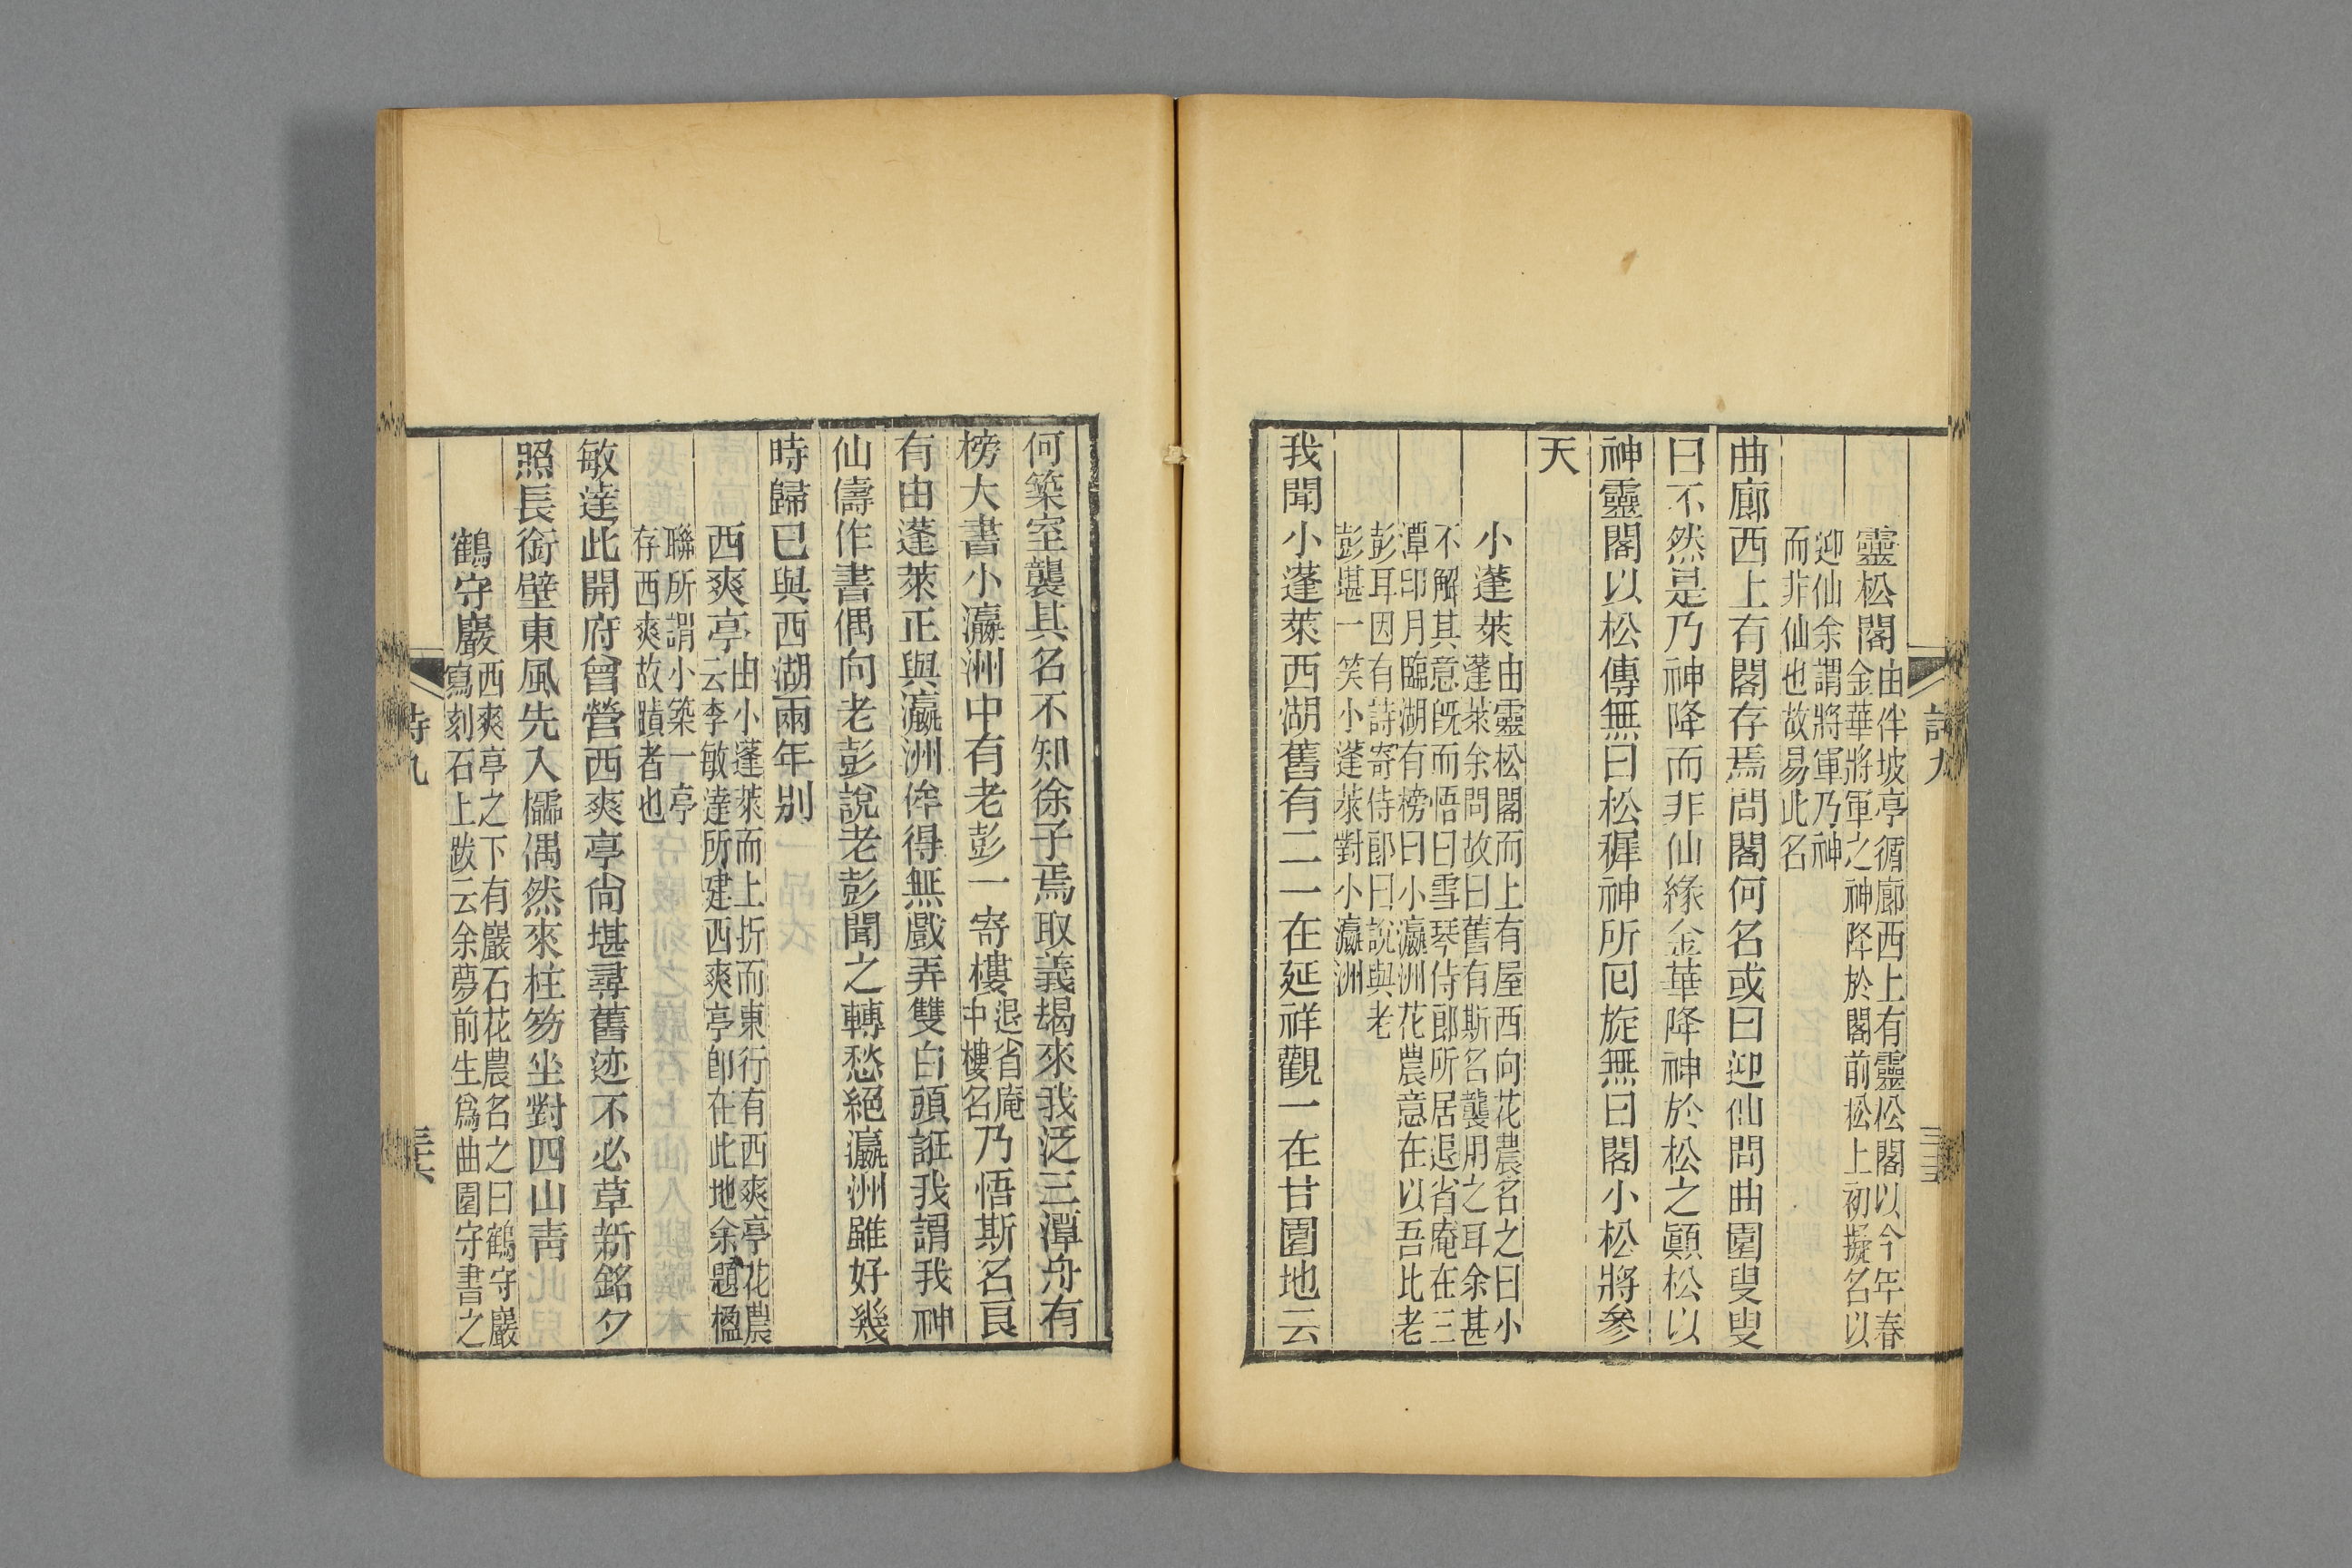 詩九
靈松閣由伴坡亭循廊西上有靈松閣以今年春
金華將軍之神降於閣前松上初擬名以
迎仙余謂將軍乃神
而非仙也故易此名
曲廊西上有閣存焉問閣何名或曰迎仙問曲園叟叟
曰不然是乃神降而非仙緣金華降神於松之顚松以
神靈閣以松傳無曰松穉神所囘旋無曰閣小松將參
天
小蓬萊由靈松閣而上有屋西向花農名之曰小
蓬萊余問故曰舊有斯名襲用之耳余甚
不解其意旣而悟曰雪琴侍郎所居退省庵在三
潭印月臨湖有榜曰小瀛洲花農意在以吾比老
彭耳因有詩寄侍郎曰說與老
彭堪一笑小蓬萊對小瀛洲
我聞小蓬萊西湖舊有二一在延祥觀一在甘園地云
何築室襲其名不知徐子焉取義朅來我泛三潭舟有
榜大書小瀛洲中有老彭一寄樓退省庵
中樓名乃悟斯名良
有由蓬萊正與瀛洲侔得無戲弄雙白頭誑我謂我神
仙儔作書偶向老彭說老彭聞之轉愁絕瀛洲雖好幾
時歸已與西湖兩年別
西爽亭由小蓬萊而上折而東行有西爽亭花農
云李敏達所建西爽亭卽在此地余題楹
聯所謂小築一亭
存西爽故蹟者也
敏達此開府曾營西爽亭尙堪尋舊迹不必草新銘夕
照長銜壁東風先入櫺偶然來柱笏坐對四山靑
鶴守巖西爽亭之下有巖石花農名之曰鶴守巖
寫刻石上跋云余夢前生爲曲園守書之
詩九